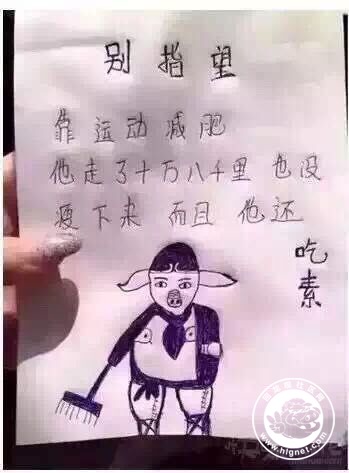 别指望
靠运动减肥
他走了十万八千里也没
瘦下来 而且 他还
吃素
www.hlgnet.com